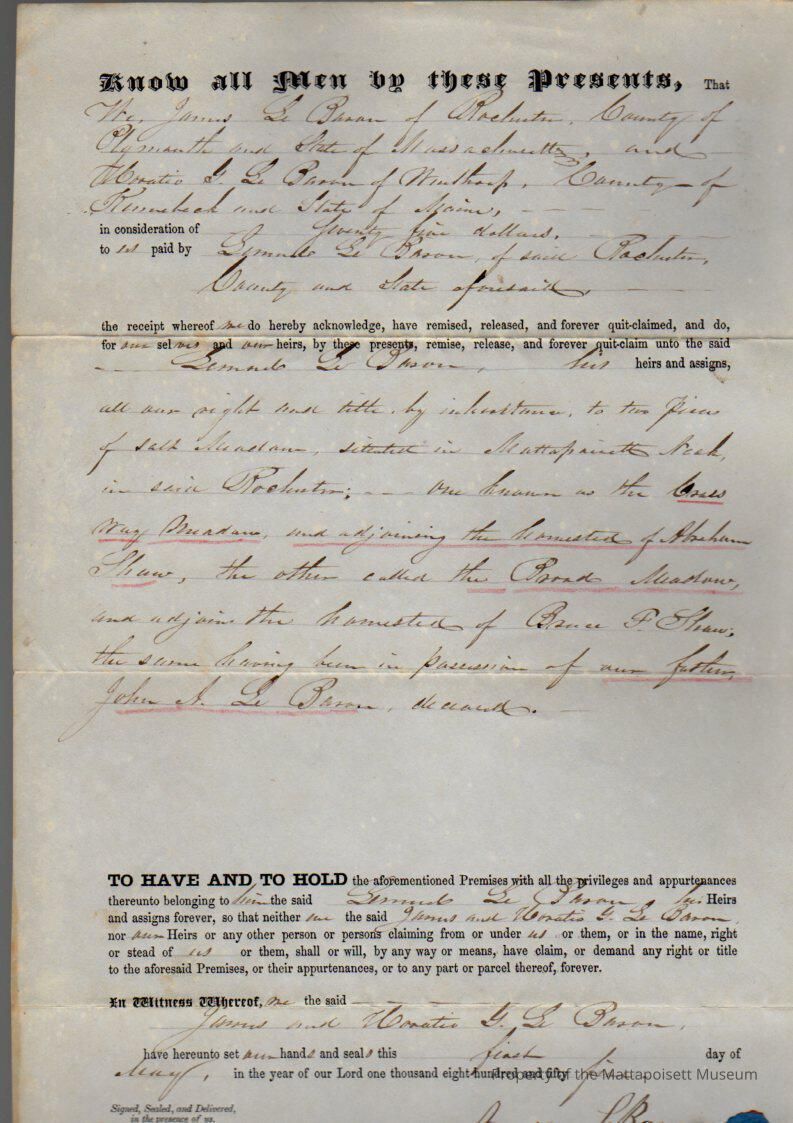 Know all Men by these Presents, That
We, James Le Baron of Rochester, County of
Plymouth and State of Massachusetts, and
Horatio G. Le Baron of Winthrop, County of
Kennebeck and State of Maine,
in consideration of Seventy five dollars,
to us paid by Lemuel Le Baron, of said Rochester,
County and State aforesaid,
the receipt whereof we do hereby acknowledge, have remised, released, and forever quit-claimed, and do,
for our selves and our heirs, by these presents, remise, release, and forever quit-claim unto the said
Lemuel Le Baron, his heirs and assigns,
all our right and title, by inheritance, to two pieces
of salt Meadow, situated in Mattapoisett Neck,
in said Rochester; one known as the Cross
way Meadow, and adjoining the homested of Abraham
Shaw, the other called the Broad Meadow,
and adjoins the homested of Bruce F. Shaw;
the same having been in possession of our father,
John A. Le Baron, deceased.
TO HAVE AND TO HOLD the aforementioned Premises with all the privileges and appurtenances
thereunto belonging to him the said Lemuel Le Baron his Heirs
and assigns forever, so that neither we the said James and Horatio G. Le Baron,
nor our Heirs or any other person or persons claiming from or under us or them, or in the name, right
or stead of us or them, shall or will, by any way or means, have claim, or demand any right or title
to the aforesaid Premises, or their appurtenances, or to any part or parcel thereof, forever.
In Witness Whereof, we the said
James and Horatio G. Le Baron,
have hereunto set our hands and seals this first day of
May, in the year of our Lord one thousand eight hundred and fifty
Property of the Mattapoisett Museum
Signed, Sealed, and Delivered,
in the presence of us.